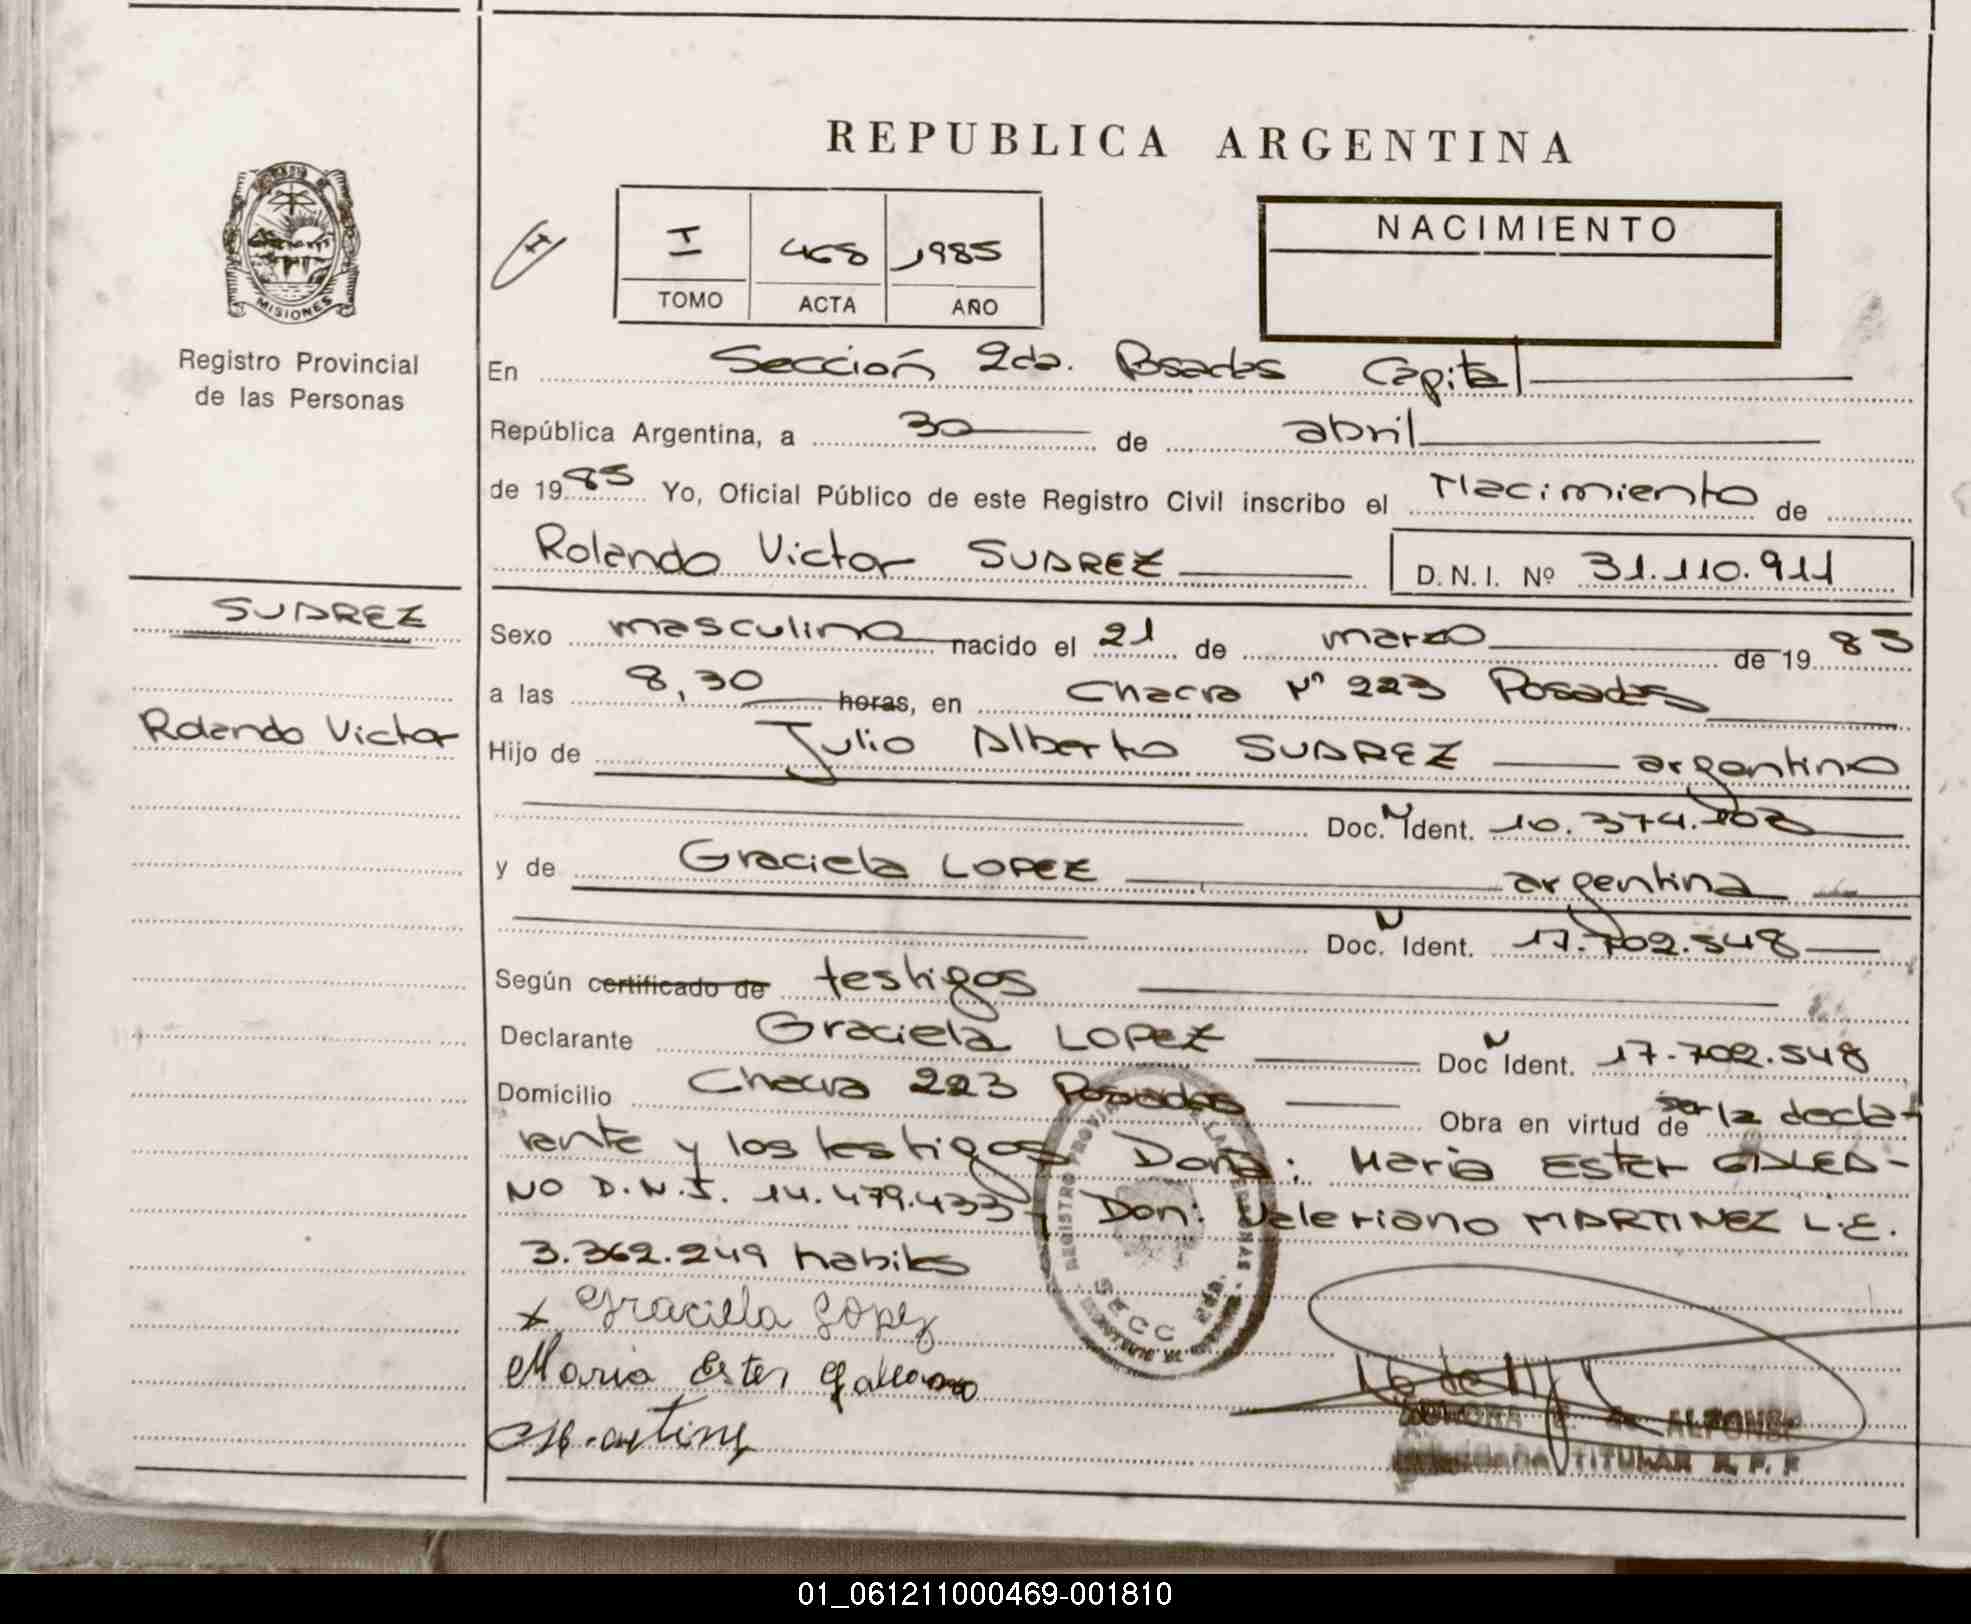 REPUBLICA ARGENTINA
NACIMIENTO
I 468 1985
TOMO ACTA AÑO
MISIONES
Registro Provincial
de las Personas
En Sección 2da. Posadas Capital
República Argentina, a 30 de abril
de 1985 Yo, Oficial Público de este Registro Civil inscribo el Nacimiento de
Rolando Victor SUAREZ D.N.I. Nº 31.110.911
SUAREZ
Rolando Victor
Sexo masculino nacido el 21 de marzo de 1985
a las 8,30 horas, en Chacra Nº 223 Posadas
Hijo de Julio Alberto SUAREZ argentino
Doc. N Ident. 10.374.
y de Graciela LOPEZ argentina
Doc. N Ident. 17.702.548
Según certificado de testigos
Declarante Graciela LOPEZ Doc N Ident. 17.702.548
Domicilio Chacra 223 Posadas Obra en virtud de ser la decla-
rante y los testigos Doña: Maria Ester GALEA-
NO D.N.I. 14.479.433 Don: Valeriano MARTINEZ L.E.
3.362.249 habiles
x Graciella Lopez
Maria Ester Galeano
REGISTRO PROVINCIAL DE LAS PERSONAS
SECC 2da.
ALFONSO
TITULAR R. P. P
01_061211000469-001810